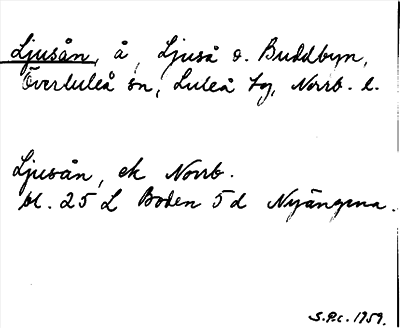 Ljusån, å, Ljuså o. Buddbyn,
Överluleå sn, Luleå tg, Norrb. l.
Ljusån, ek Norrb.
bl. 25 L Boden 5d Nyängena.
S.P.c. 1959.